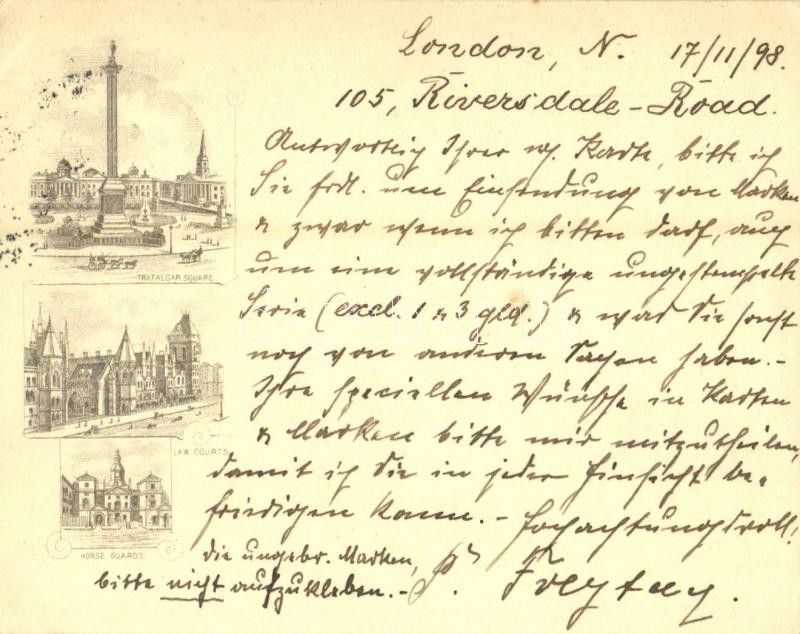 London, N. 17/11/98.
105, Riversdale-Road.
Antwortlich Ihrer w. Karte, bitte ich
Sie frdl. um Einsendung von Marken
& zwar wenn ich bitten darf, auch
um eine vollständige ungestempelte
Serie (excl. 1 & 3 gld.) & was Sie sonst
noch von anderen Sachen haben.-
Ihre speciellen Wünsche in Karten
& Marken bitte mir mitzutheilen,
damit ich Sie in jeder Hinsicht be-
friedigen kann.- Hochachtungsvoll!
die ungebr. Marken, P. Freytag.
bitte nicht aufzukleben.-
TRAFALGAR SQUARE
LAW COURTS
HORSE GUARDS